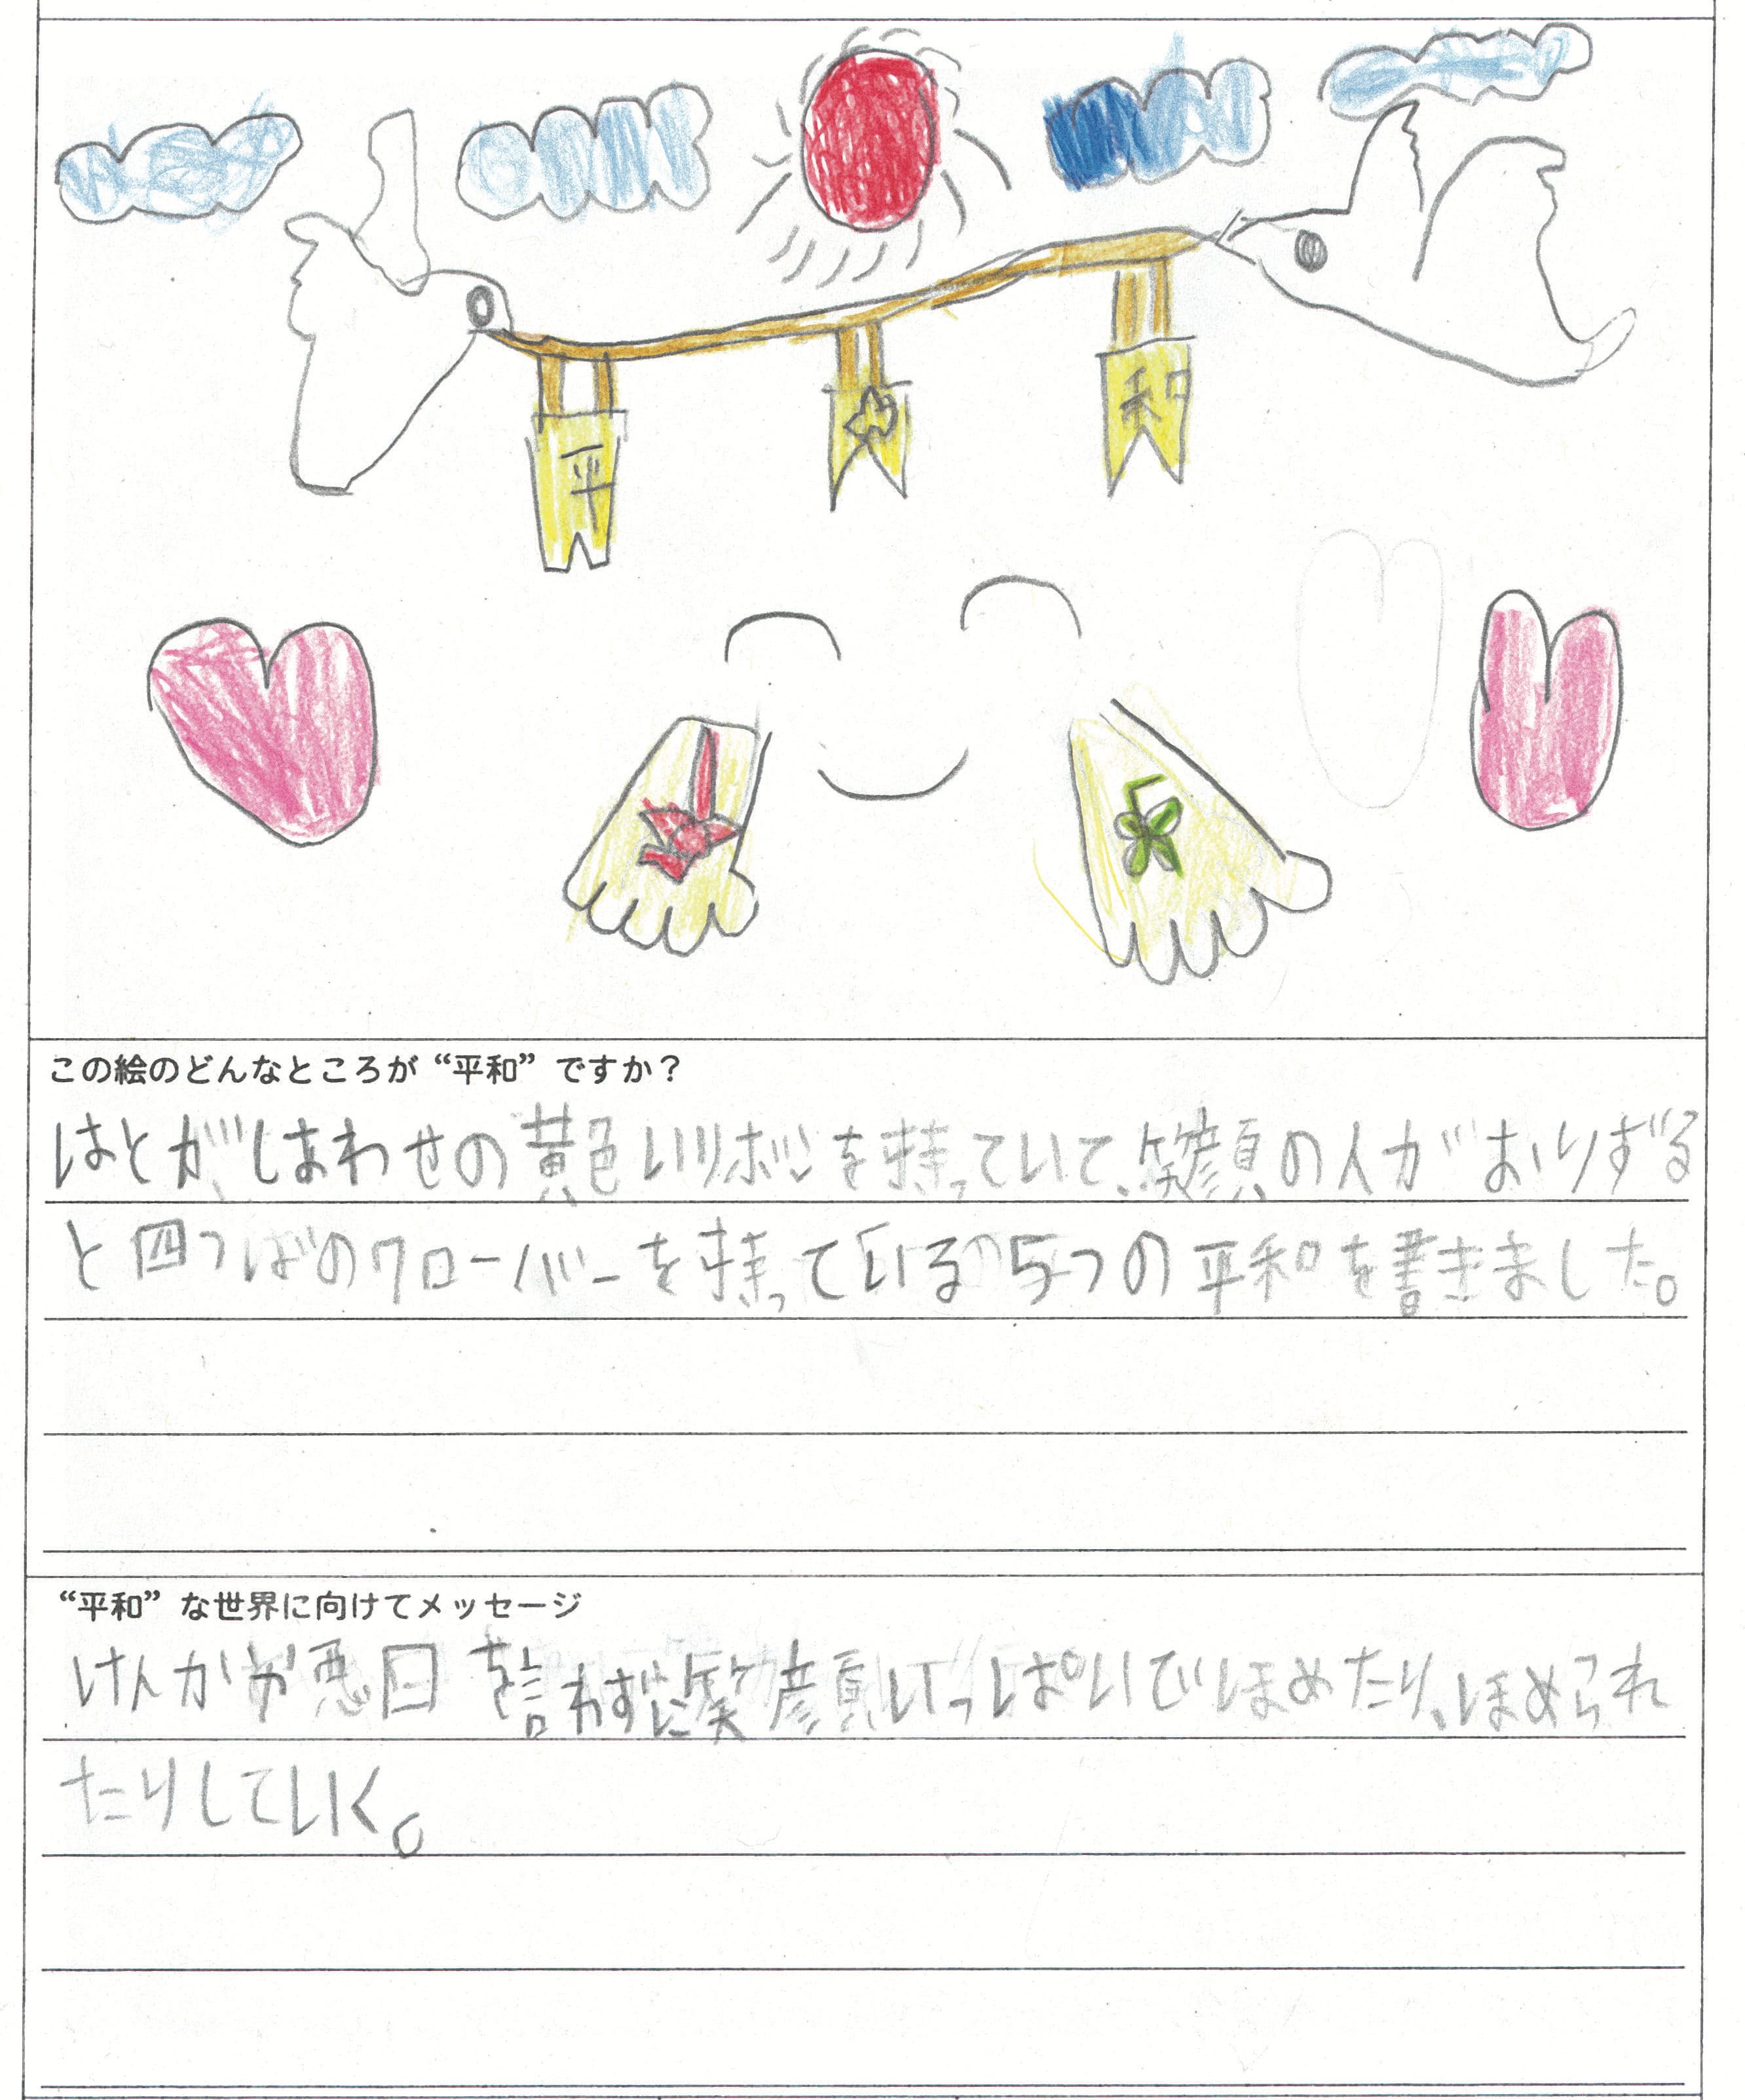 平
和
この絵のどんなところが“平和”ですか？
はとがしあわせの黄色いリボンを持っていて、笑顔の人がおりずる
と四つばのクローバーを持っている5つの平和を書きました。
“平和”な世界に向けてメッセージ
けんかや悪口を言わずに笑顔いっぱいでほめたり、ほめられ
たりしていく。